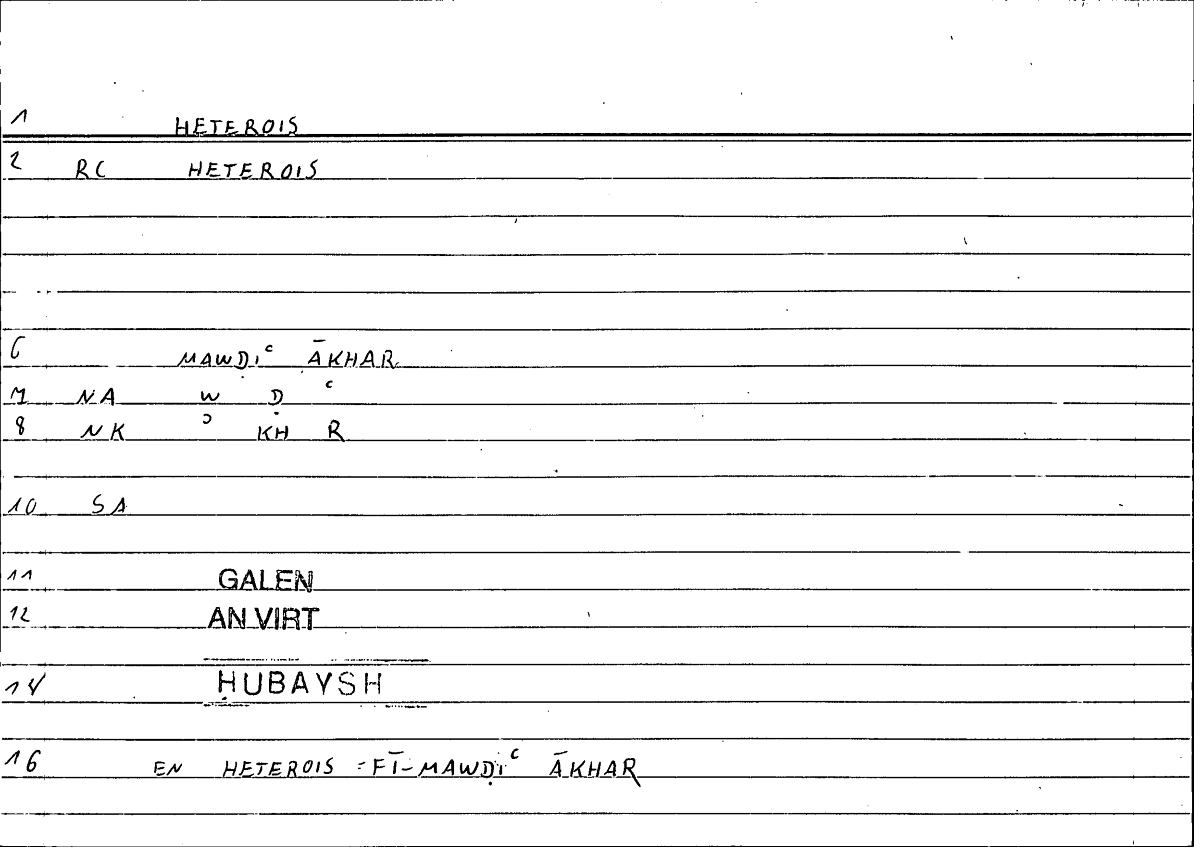 1 HETEROIS
2 RC HETEROIS
6 MAWḌIʿ ĀKHAR
7 NA W Ḍ ʿ
8 NK ʾ KH R
10 SA
11 GALEN
12 AN VIRT
14 ḤUBAYSH
16 EN HETEROIS = FĪ-MAWḌIʿ ĀKHAR